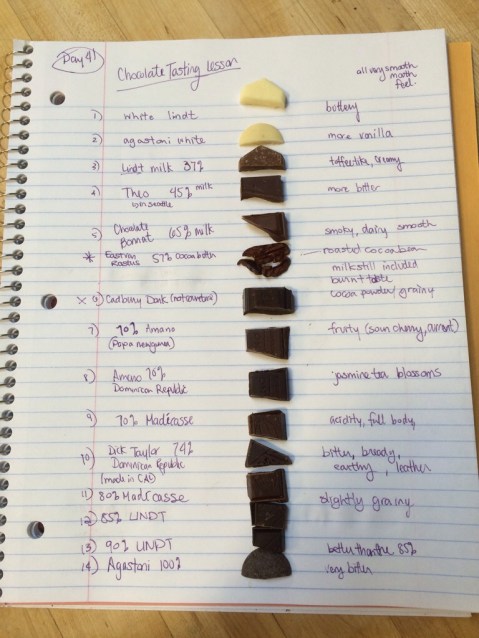 Day 41
Chocolate Tasting Lesson
all very smooth
mouth
feel
1) white lindt buttery
2) agastoni white more vanilla
3) Lindt milk 37% toffee like, creamy
4) Theo 45% milk more bitter
5) Chocolate Bonnat 65% milk smoky, dairy smooth
* Eastern 57% cocoa butter roasted cocoa bean
milk still included
burnt taste
x 6) Cadbury Dark (not counted) cocoa powder/grainy
7) 70% Amano fruity (sour cherry, currant)
(Papa new guinea)
8) Amano 70% jasmine tea blossoms
Dominican Republic
9) 70% Madécasse acidity, full body,
10) Dick Taylor 74% bitter, bready,
Dominican Republic earthy, leather
(made in CA)
11) 80% Madécasse slightly grainy
12) 85% LINDT
13) 90% LINDT better than the 85%
14) Agastoni 100% very bitter